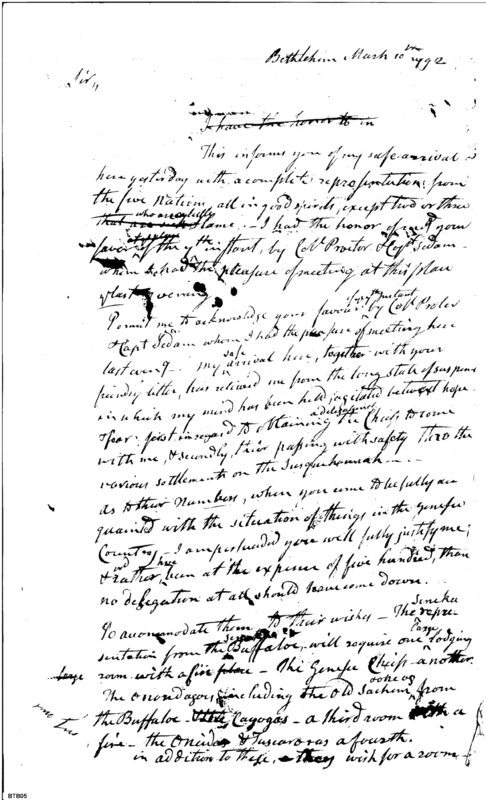 Bethlehem March 10th 1792
Sir,,
I have the honor to in
This informs you of my safe arrival
here yesterday with a complete representation, from
the five Nations, all in good spirits, except two or three
that are who are lame, - I had the honor of your
favor of the 7th instant, by Colo. Proctor & Capt. Sedam -
whom I had the pleasure of meeting at this place
last evening.
Permit me to acknowledge your favour of by Colo. Procter
& Capt Sedam whom I had the pleasure of meeting here
last eveng - my safe arrival here, together with your
friendly letter, has relieved me from the long state of suspense
in which my mind has been held, agitated between hope
& fear. first in regard to obtaining a delegation the Chiefs to come
with me, & secondly, their passing with safety thro the
various settlements on the Susquehannah -
as to their numbers, when you come to be fully ac
quainted with the situation of things in the Genesee
Country - I am persuaded you will fully justify me;
& would rather have been at the expence of five hundred, than
no delegation at all should have come down.
To accommodate them to their wishes - The Seneka repre-
sentation from the Buffaloe, will require one large lodging
Large room with a fire place - The Genesee Chiefs another
The Onondagoes, including the Old Sachem from
the Buffaloe - Cayogas - a third room with a
fire - the Oneidas & Tuscaroras a fourth.
in addition to these, they wish for a room
BTB05